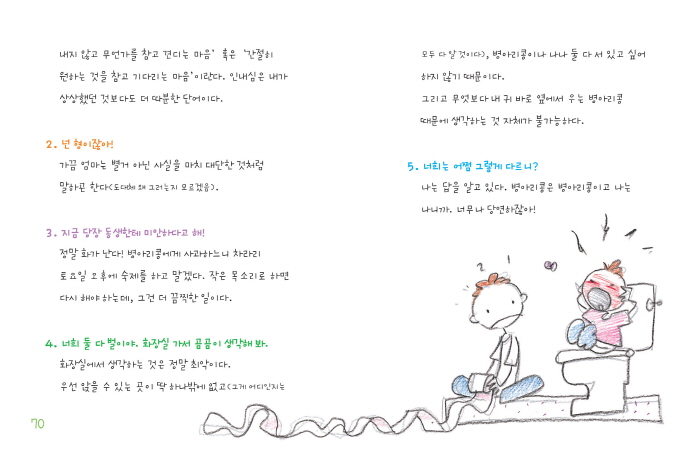 내지 않고 무언가를 참고 견디는 마음' 혹은 '간절히
원하는 것을 참고 기다리는 마음'이란다. 인내심은 내가
상상했던 것보다도 더 따분한 단어이다.
2. 넌 형이잖아!
가끔 엄마는 별거 아닌 사실을 마치 대단한 것처럼
말하곤 한다(도대체 왜 그러는지 모르겠음).
3. 지금 당장 동생한테 미안하다고 해!
정말 화가 난다! 병아리콩에게 사과하느니 차라리
토요일 오후에 숙제를 하고 말겠다. 작은 목소리로 하면
다시 해야 하는데, 그건 더 끔찍한 일이다.
4. 너희 둘 다 벌이야. 화장실 가서 곰곰이 생각해 봐.
화장실에서 생각하는 것은 정말 최악이다.
우선 앉을 수 있는 곳이 딱 하나밖에 없고(그게 어디인지는
70
모두 다 알 것이다), 병아리콩이나 나나 둘 다 서 있고 싶어
하지 않기 때문이다.
그리고 무엇보다 내 귀 바로 옆에서 우는 병아리콩
때문에 생각하는 것 자체가 불가능하다.
5. 너희는 어쩜 그렇게 다르니?
나는 답을 알고 있다. 병아리콩은 병아리콩이고 나는
나니까. 너무나 당연하잖아!